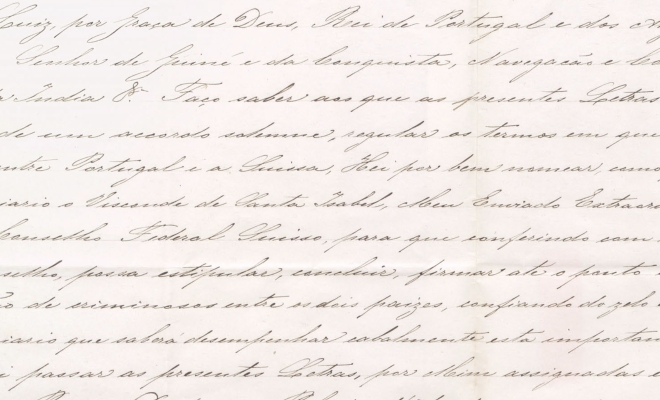 Luiz, por Graça de Deus, Rei de Portugal e dos
Senhor de Guiné e da Conquista, Navegação e Co
India &ª Faço saber aos que as presentes Letras
de um accordo solemne, regular os termos em que
entre Portugal e a Suissa, Hei por bem nomear, como
iario o Visconde de Santa Isabel, Meu Enviado Extraor
Conselho Federal Suisso, para que conferindo com
selho, possa estipular, concluir, firmar até o ponto
ão de criminosos entre os dois paizes, confiando do zelo
iario que saberá desempenhar cabalmente esta importan
i passar as presentes Letras, por Mim assignadas e